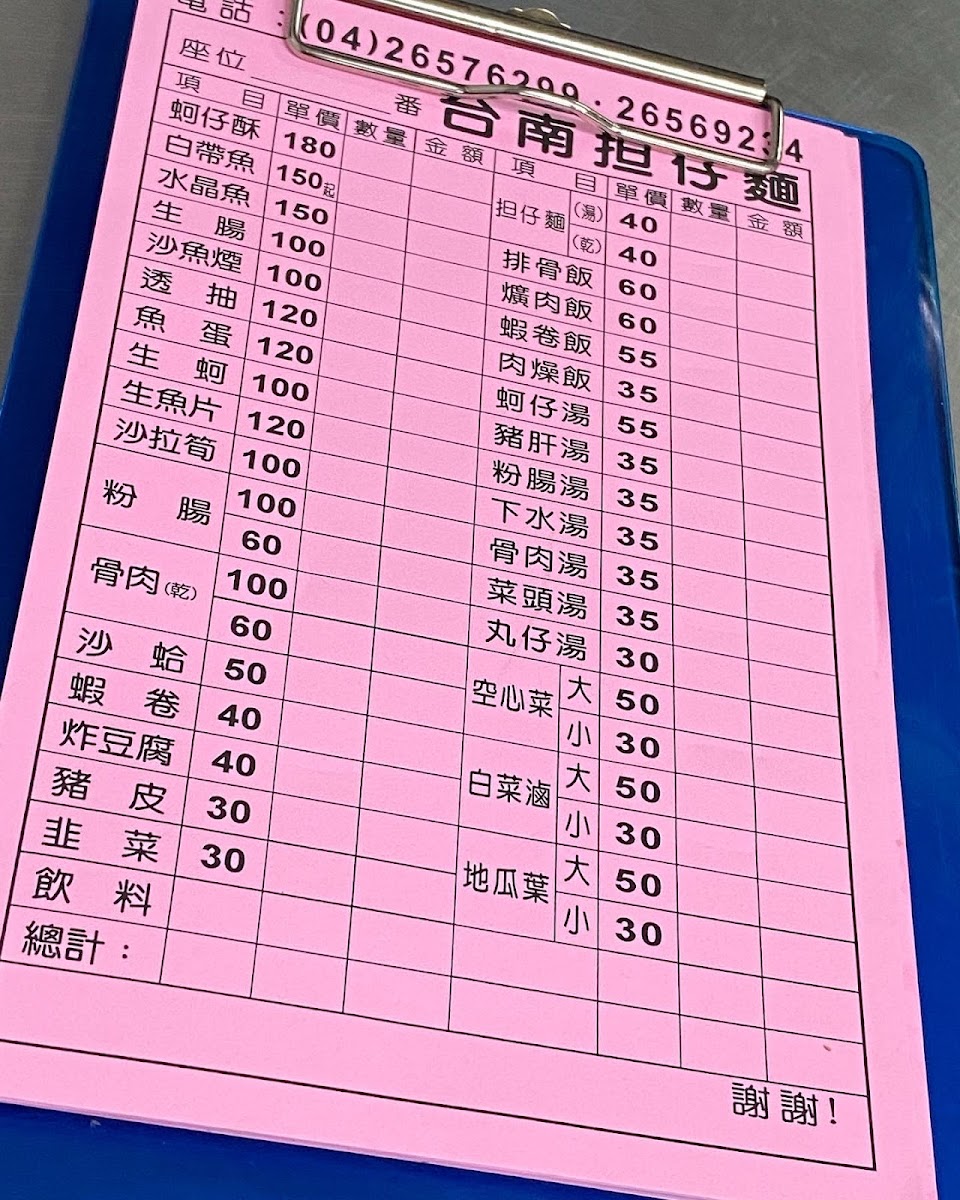 電話：(04)26576299．26569234
座位　　番 台南担仔麵
項目 單價 數量 金額
蚵仔酥 180
白帶魚 150起
水晶魚 150
生腸 100
沙魚煙 100
透抽 120
魚蛋 120
生蚵 100
生魚片 120
沙拉筍 100
粉腸 100
60
骨肉(乾) 100
60
沙蛤 50
蝦卷 40
炸豆腐 40
豬皮 30
韭菜 30
飲料
總計：
項目 單價 數量 金額
担仔麵 (湯) 40
(乾) 40
排骨飯 60
爌肉飯 60
蝦卷飯 55
肉燥飯 35
蚵仔湯 55
豬肝湯 35
粉腸湯 35
下水湯 35
骨肉湯 35
菜頭湯 35
丸仔湯 30
空心菜 大 50
小 30
白菜滷 大 50
小 30
地瓜葉 大 50
小 30
謝謝！